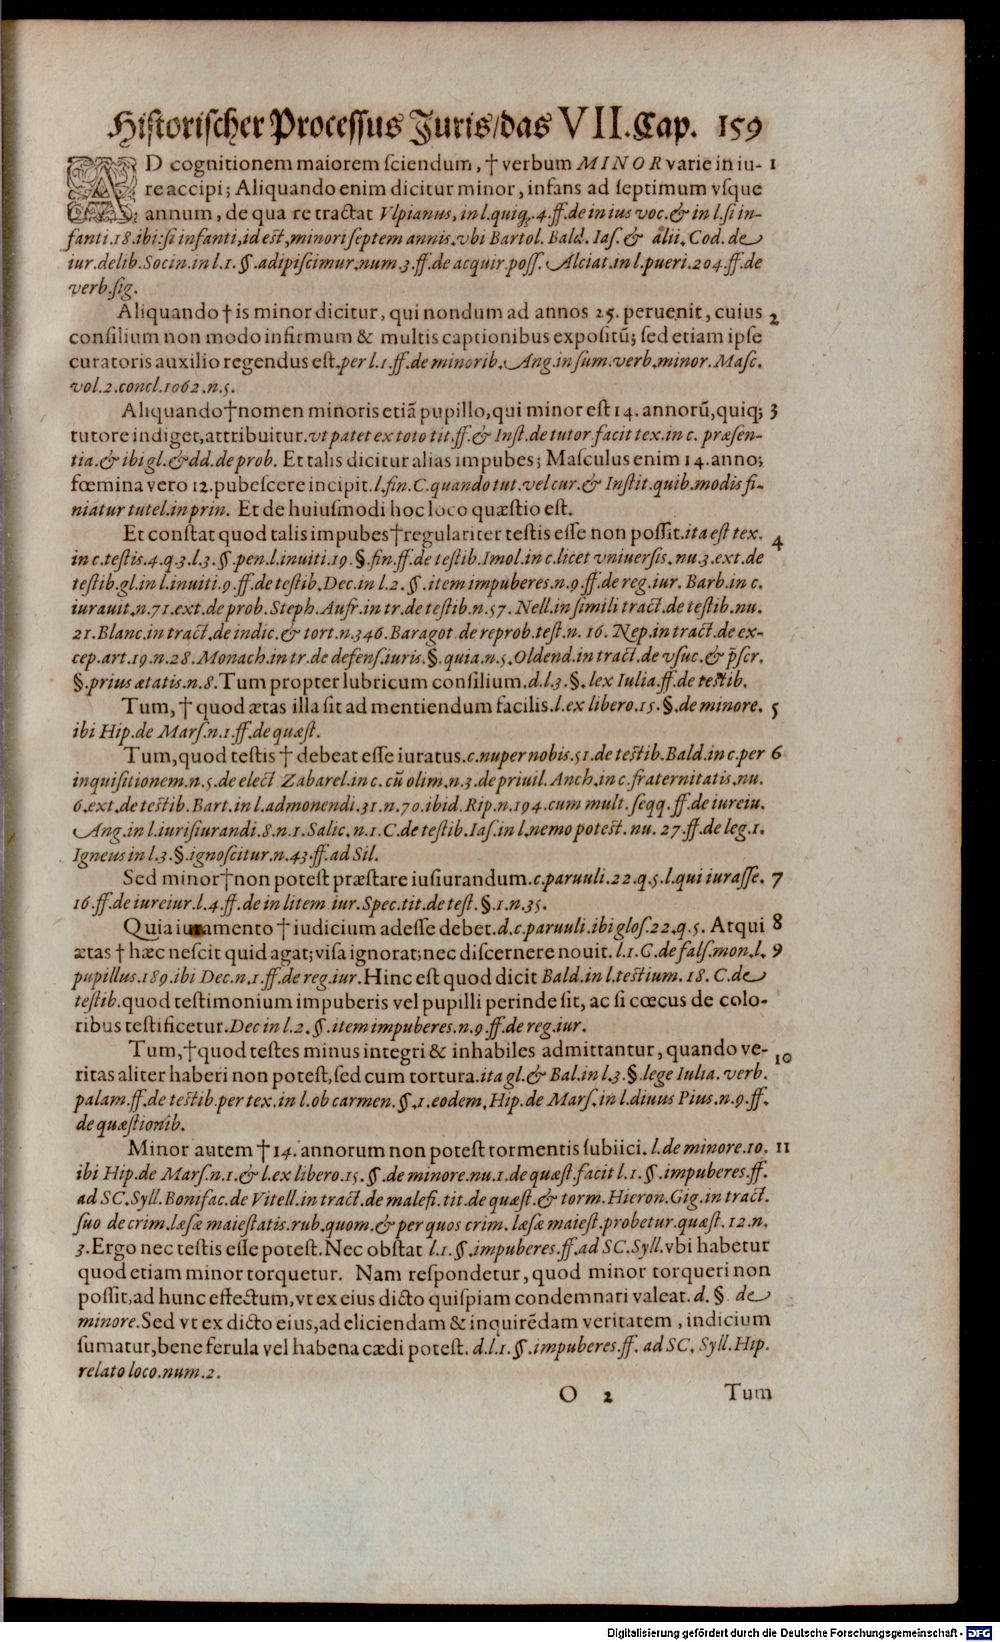 Historischer Processus Juris/das VII.Cap. 159
AD cognitionem maiorem sciendum, † verbum MINOR varie in iu- 1
re accipi; Aliquando enim dicitur minor, infans ad septimum vsque
annum, de qua re tractat Vlpianus, in l.quiq;.4.ff.de in ius voc.& in l.si in-
fanti.18.ibi:si infanti,id est,minori septem annis.vbi Bartol. Bald. Ias. & alii. Cod. de
iur.delib.Socin.in l.1.§.adipiscimur.num.3.ff.de acquir.poss. Alciat.in l.pueri.204.ff.de
verb.sig.
Aliquando † is minor dicitur, qui nondum ad annos 25. peruenit, cuius 2
consilium non modo infirmum & multis captionibus expositũ; sed etiam ipse
curatoris auxilio regendus est.per l.1.ff.de minorib. Ang.in sum.verb.minor. Masc.
vol.2.concl.1062.n.5.
Aliquando † nomen minoris etiã pupillo, qui minor est 14. annorũ, quiq; 3
tutore indiget, attribuitur.vt patet ex toto tit.ff.& Inst.de tutor.facit tex.in c. præsen-
tia.& ibi gl.& dd.de prob. Et talis dicitur alias impubes; Masculus enim 14.anno;
fœmina vero 12.pubescere incipit.l.fin.C.quando tut.vel cur.& Instit.quib.modis fi-
niatur tutel.in prin. Et de huiusmodi hoc loco quæstio est.
Et constat quod talis impubes † regulariter testis esse non possit.ita est tex. 4
in c.testis.4.q.3.l.3.§.pen.l.inuiti.19.§.fin.ff.de testib.Imol.in c.licet vniuersis.nu.3.ext.de
testib.gl.in l.inuiti.9.ff.de testib.Dec.in l.2.§.item impuberes.n.9.ff.de reg.iur. Barb.in c.
iurauit.n.71.ext.de prob.Steph.Aufr.in tr.de testib.n.57. Nell.in simili tract.de testib.nu.
21.Blanc.in tract.de indic.& tort.n.346.Baragot.de reprob.test.n. 16. Nep.in tract.de ex-
cep.art.19.n.28.Monach.in tr.de defens.iuris.§.quia.n.5.Oldend.in tract.de vsuc.& p̃scr.
§.prius ætatis.n.8.Tum propter lubricum consilium.d.l.3.§.lex Iulia.ff.de testib.
Tum, † quod ætas illa sit ad mentiendum facilis.l.ex libero.15.§.de minore. 5
ibi Hip.de Mars.n.1.ff.de quæst.
Tum, quod testis † debeat esse iuratus.c.nuper nobis.51.de testib.Bald.in c.per 6
inquisitionem.n.5.de elect Zabarel.in c.cũ olim.n.3.de priuil.Anch.in c.fraternitatis.nu.
6.ext.de testib.Bart.in l.admonendi.31.n.70.ibid.Rip.n.194.cum mult.seqq.ff.de iureiu.
Ang.in l.iurisiurandi.8.n.1.Salic.n.1.C.de testib.Ias.in l.nemo potest.nu. 27.ff.de leg.1.
Igneus in l.3.§.ignoscitur.n.43.ff.ad Sil.
Sed minor † non potest præstare iusiurandum.c.paruuli.22.q.5.l.qui iurasse. 7
16.ff.de iureiur.l.4.ff.de in litem iur.Spec.tit.de test.§.1.n.35.
Quia iuramento † iudicium adesse debet.d.c.paruuli.ibi glos.22.q.5. Atqui 8
ætas † hæc nescit quid agat; visa ignorat; nec discernere nouit. l.1.C.de fals.mon.l. 9
pupillus.189.ibi Dec.n.1.ff.de reg.iur.Hinc est quod dicit Bald.in l.testium. 18. C.de
testib.quod testimonium impuberis vel pupilli perinde sit, ac si cœcus de colo-
ribus testificetur.Dec in l.2.§.item impuberes.n.9.ff.de reg.iur.
Tum, † quod testes minus integri & inhabiles admittantur, quando ve- 10
ritas aliter haberi non potest, sed cum tortura.ita gl.& Bal.in l.3.§.lege Iulia. verb.
palam.ff.de testib.per tex.in l.ob carmen.§.1.eodem.Hip.de Mars.in l.diuus Pius.n.9.ff.
de quæstionib.
Minor autem † 14. annorum non potest tormentis subiici. l.de minore.10. 11
ibi Hip.de Mars.n.1.& l.ex libero.15.§.de minore.nu.1.de quæst.facit l.1.§.impuberes.ff.
ad SC.Syll.Bonifac.de Vitell.in tract.de malefi.tit.de quæst.& torm.Hieron.Gig.in tract.
suo de crim.læsæ maiestatis.rub.quom.& per quos crim. læsæ maiest.probetur.quæst.12.n.
3.Ergo nec testis esse potest. Nec obstat l.1.§.impuberes.ff.ad SC.Syll.vbi habetur
quod etiam minor torquetur. Nam respondetur, quod minor torqueri non
possit, ad hunc effectum, vt ex eius dicto quispiam condemnari valeat.d. § de
minore.Sed vt ex dicto eius, ad eliciendam & inquirẽdam veritatem, indicium
sumatur, bene ferula vel habena cædi potest. d.l.1.§.impuberes.ff. ad SC. Syll.Hip.
relato loco.num.2.
O 2 Tum
Digitalisierung gefördert durch die Deutsche Forschungsgemeinschaft - DFG